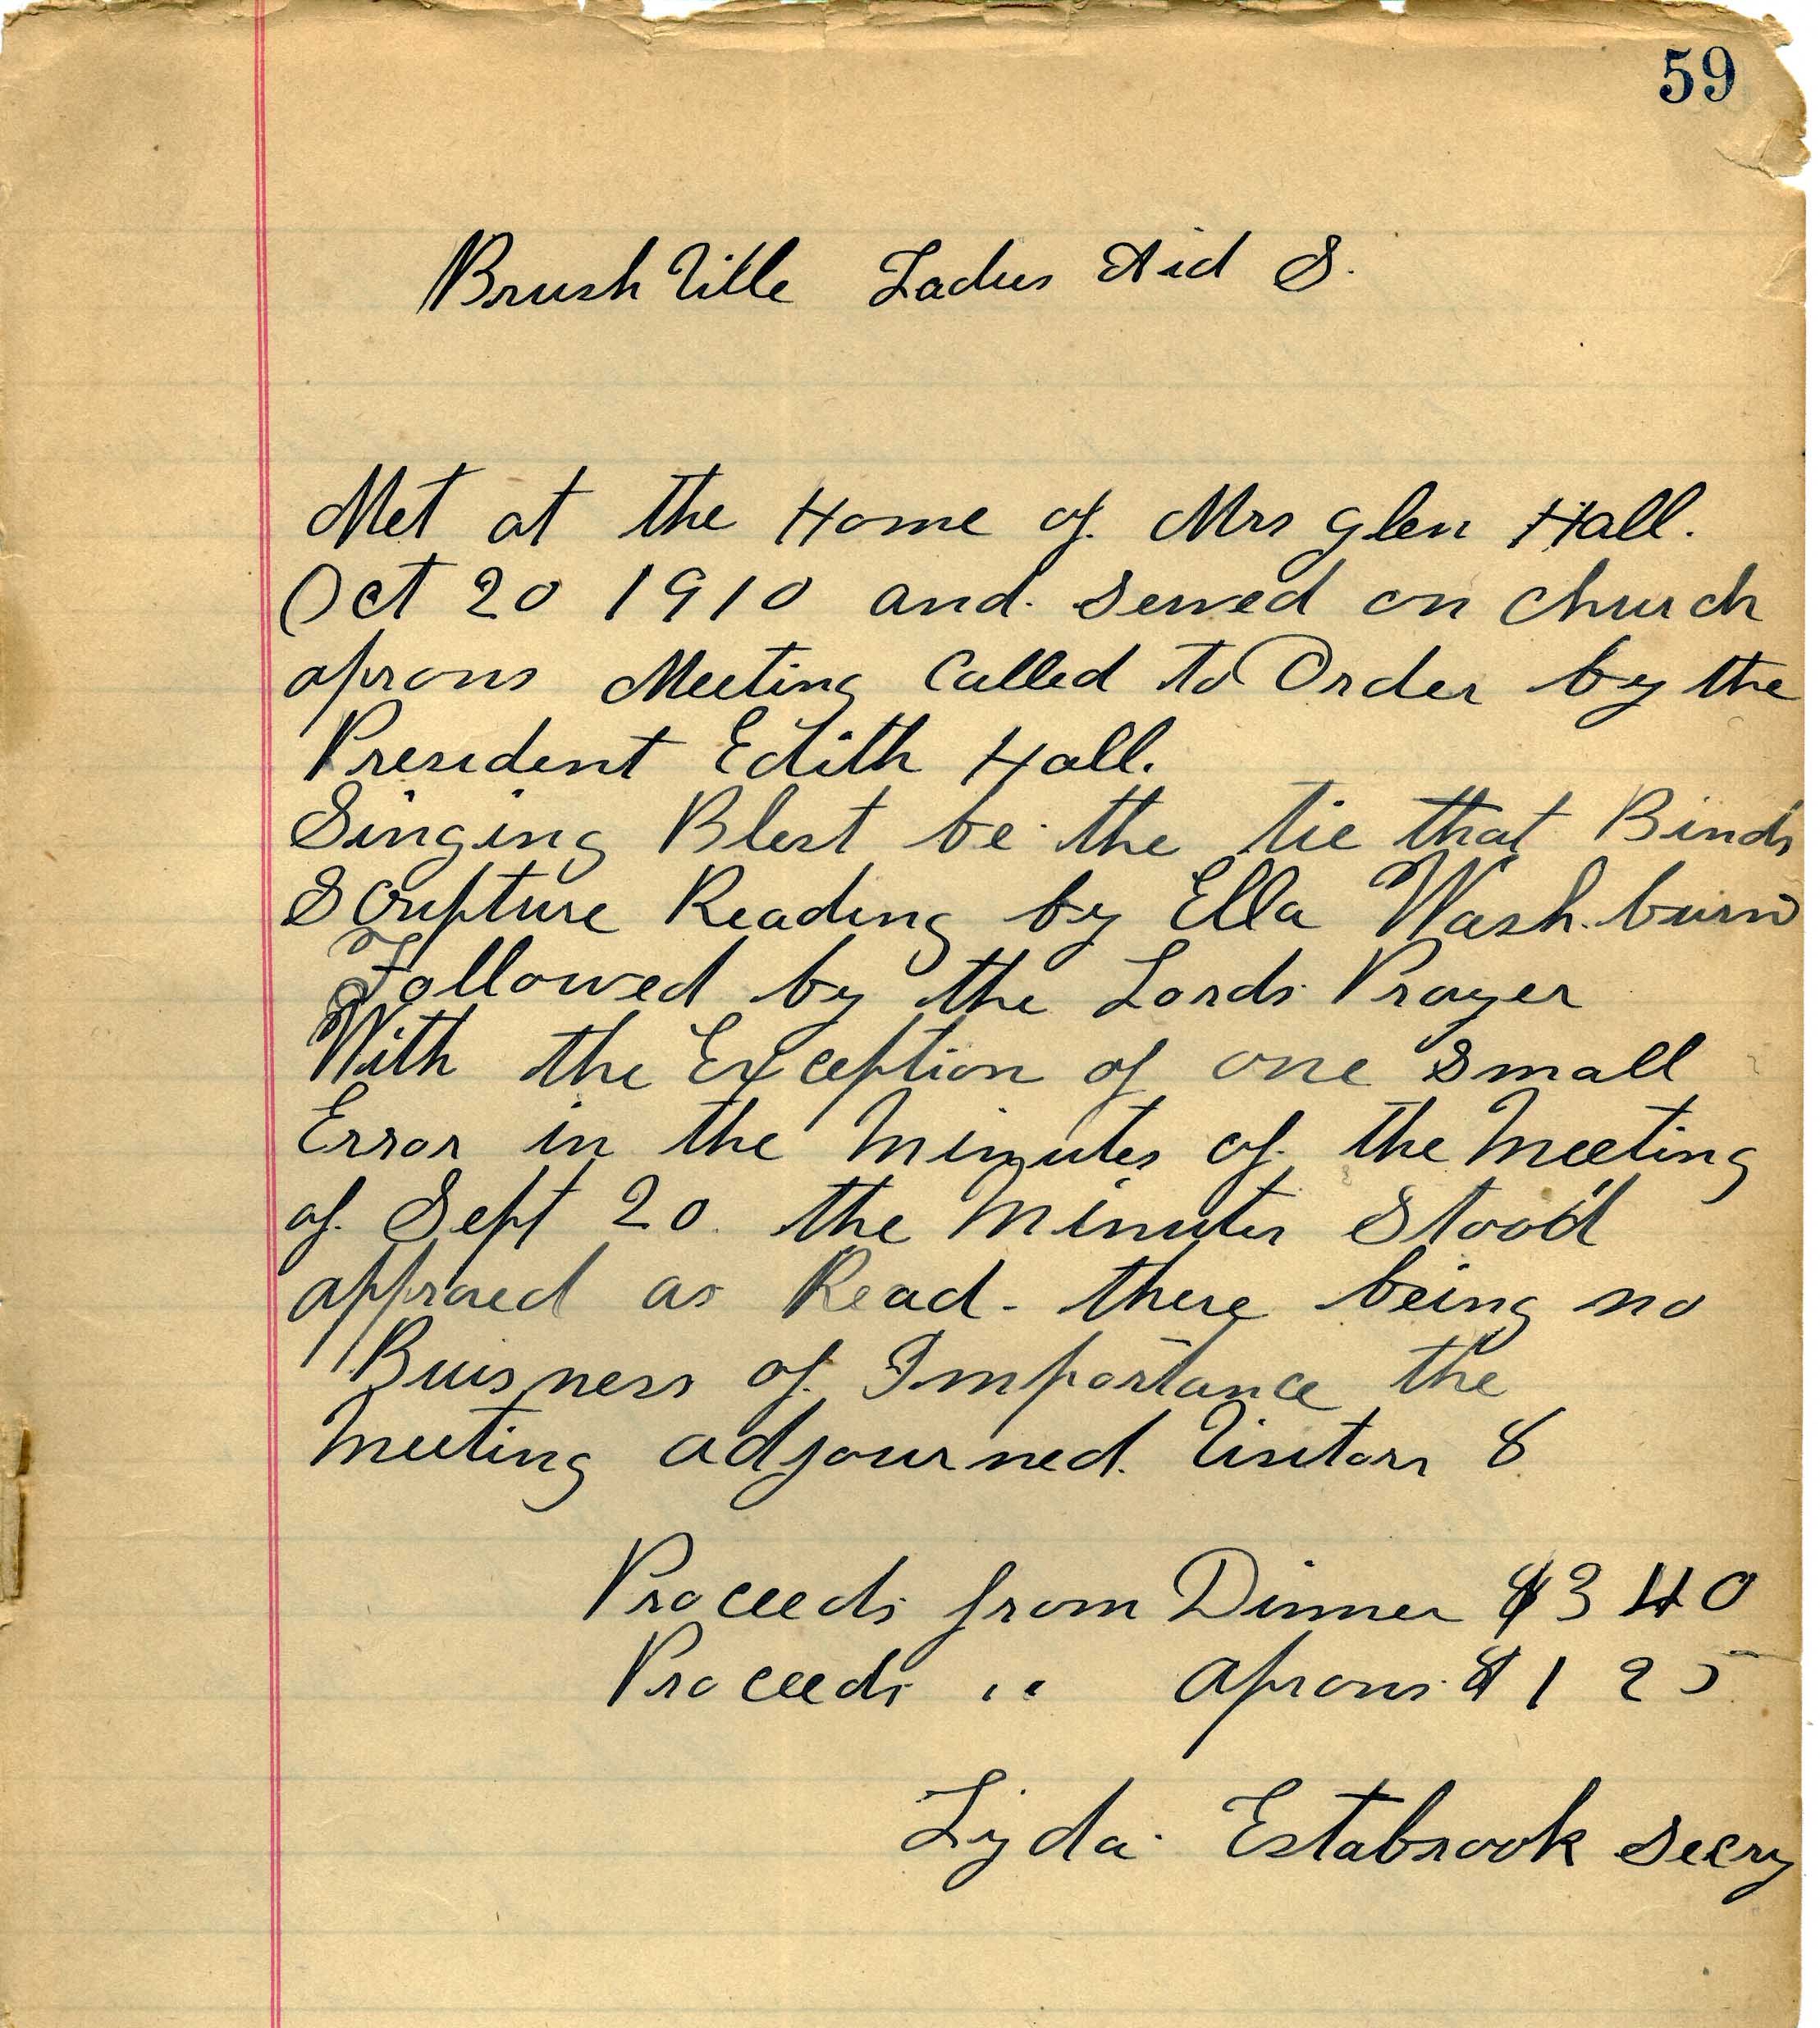 59
Brush Ville Ladies Aid S.
Met at the Home of Mrs Glen Hall.
Oct 20 1910 and served on church
aprons Meeting Called to Order by the
President Edith Hall.
Singing Blest be the tie that Binds
Scripture Reading by Ella Washburn
Followed by the Lords Prayer
With the Exception of one small
Error in the Minutes of the Meeting
of Sept 20. the Minutes Stood
approved as Read - there being no
Buisness of Importance the
Meeting adjourned. Visitors 8
Proceeds from Dinner $3 40
Proceeds " aprons $1 25
Lyda Estabrook Secry